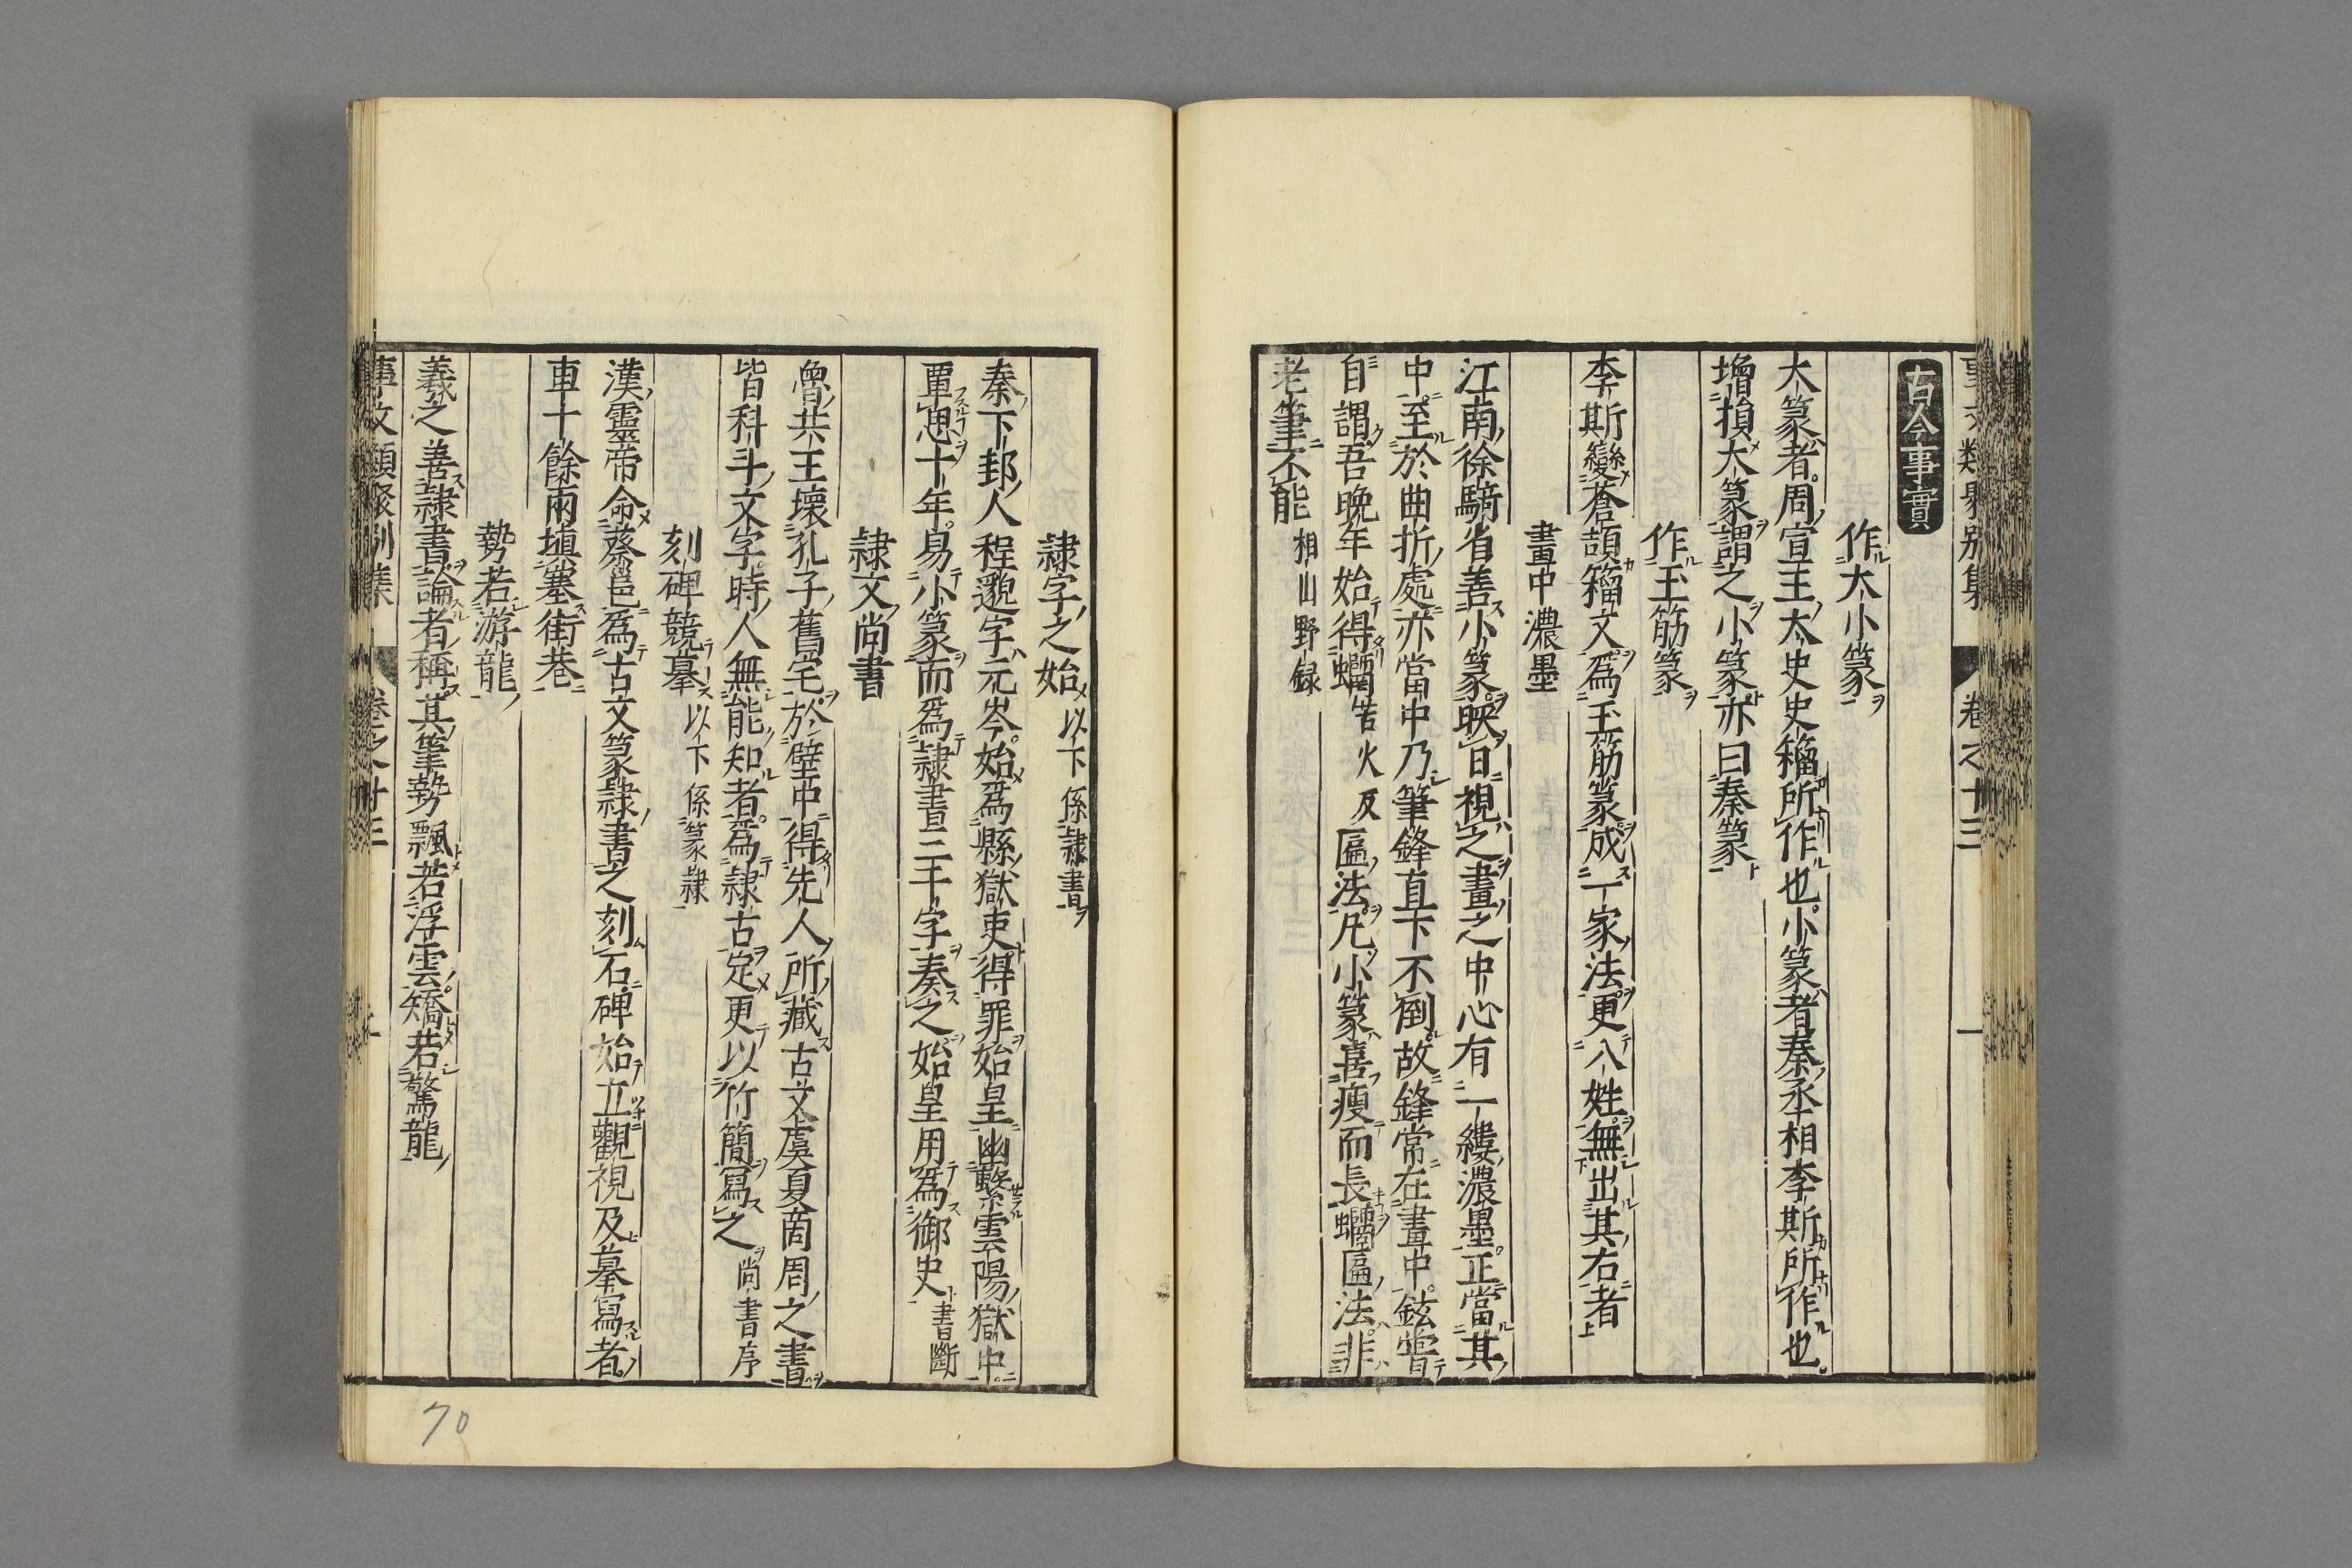 事文類聚別集 卷之十三 一
古今事實
作大小篆
大篆者周宣王太史史籀所作也小篆者秦丞相李斯所作也
增損大篆謂之小篆亦曰秦篆
作玉筋篆
李斯變蒼頡籀文爲玉筋篆成一家法更八姓無出其右者
畫中濃墨
江南徐騎省善小篆映日視之畫之中心有一縷濃墨正當其
中至於曲折處亦當中乃筆鋒直下不倒故鋒常在畫中鉉嘗
自謂吾晩年始得𧕦吿火反匾法凡小篆喜瘦而長𧕦匾法非
老筆不能 相山野録
隷字之始 以下係隷書
秦下邽人程邈字元岑始爲縣獄吏得罪始皇幽繫雲陽獄中
覃思十年易小篆而爲隷書三千字奏之始皇用爲御史 書斷
隷文尚書
魯共王壞孔子舊宅於壁中得先人所藏古文虞夏商周之書
皆科斗文字時人無能知者爲隷古定更以竹簡寫之 尚書序
刻碑競摹 以下係篆隷
漢靈帝命蔡邕爲古文篆隷書之刻石碑始立觀視及摹寫者
車十餘兩塡塞街巷
勢若游龍
羲之善隷書論者稱其筆勢飄若浮雲矯若驚龍
事文類聚別集 卷之十三
70